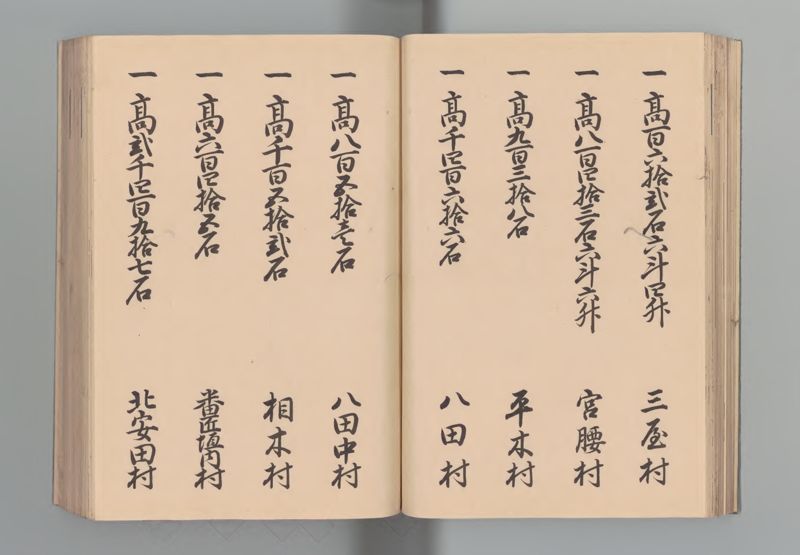 一 高百六拾弐石六斗四升 三屋村
一 高八百四拾三石六斗六升 宮腰村
一 高九百三拾八石 平木村
一 高千四百六拾六石 八田村
一 高八百五拾壱石 八田中村
一 高千百五拾弐石 相木村
一 高六百四拾五石 番匠垣内村
一 高弐千四百九拾七石 北安田村